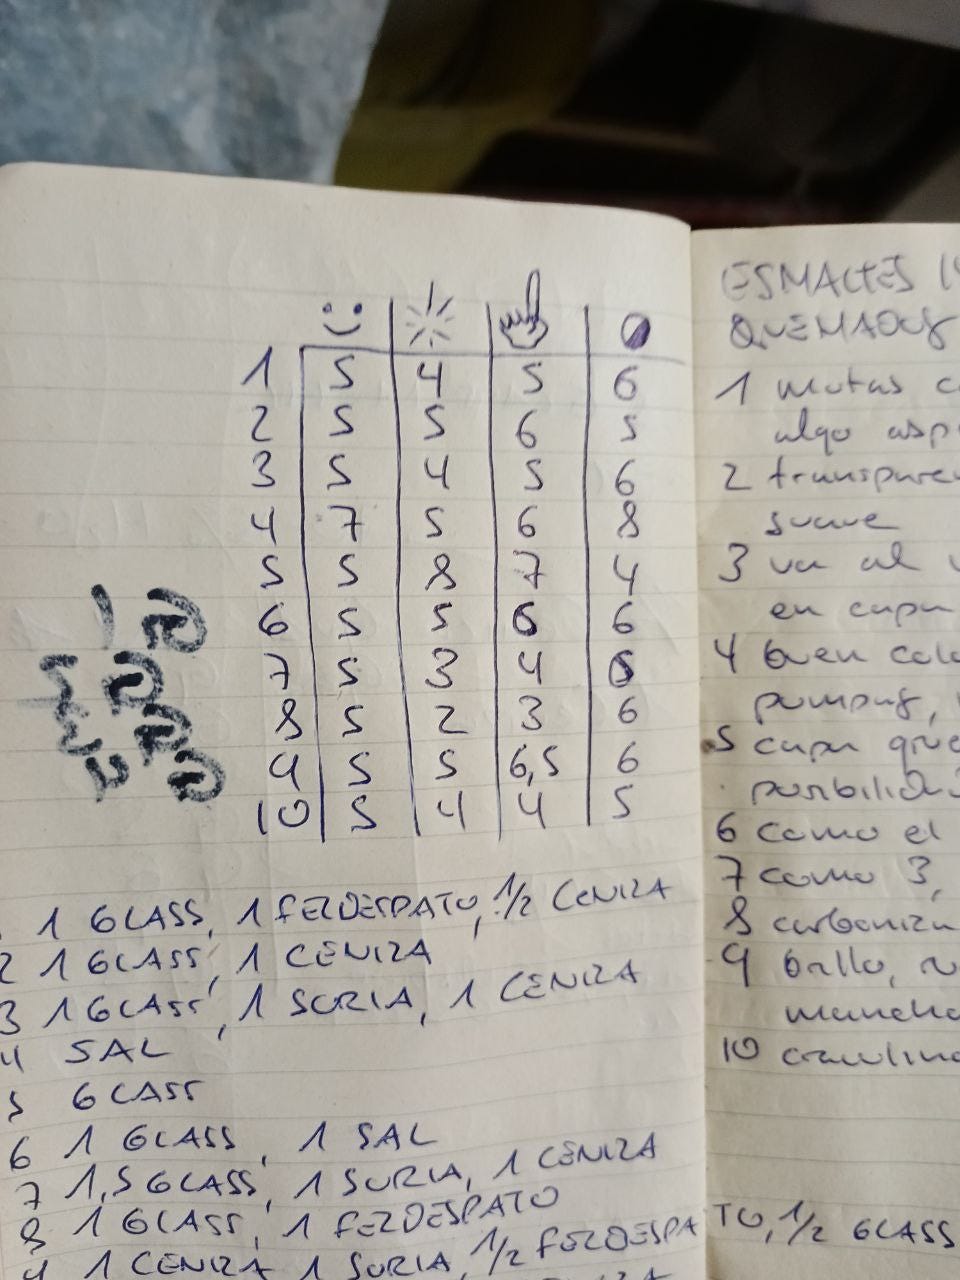 1 5 4 5 6
2 5 5 6 5
3 5 4 5 6
4 7 5 6 8
5 5 8 7 4
6 5 5 6 6
7 5 3 4
8 5 2 3 6
9 5 5 6,5 6
10 5 4 4 5
1 GLASS, 1 FELDESPATO, 1/2 CENIZA
2 1 GLASS, 1 CENIZA
3 1 GLASS, 1 SURIA, 1 CENIZA
4 SAL
5 GLASS
6 1 GLASS, 1 SAL
7 1,5 GLASS, 1 SURIA, 1 CENIZA
8 1 GLASS, 1 FELDESPATO
9 1 CENIZA 1 SURIA, 1/2 FELDESPATO, 1/2 GLASS
ESMALTES
QUEMADOS
1 motas
algo
2
suave
3 va al
en capa
4 buen
5 capa que
6 como el
7 como 3,
8
9 brillo,
10